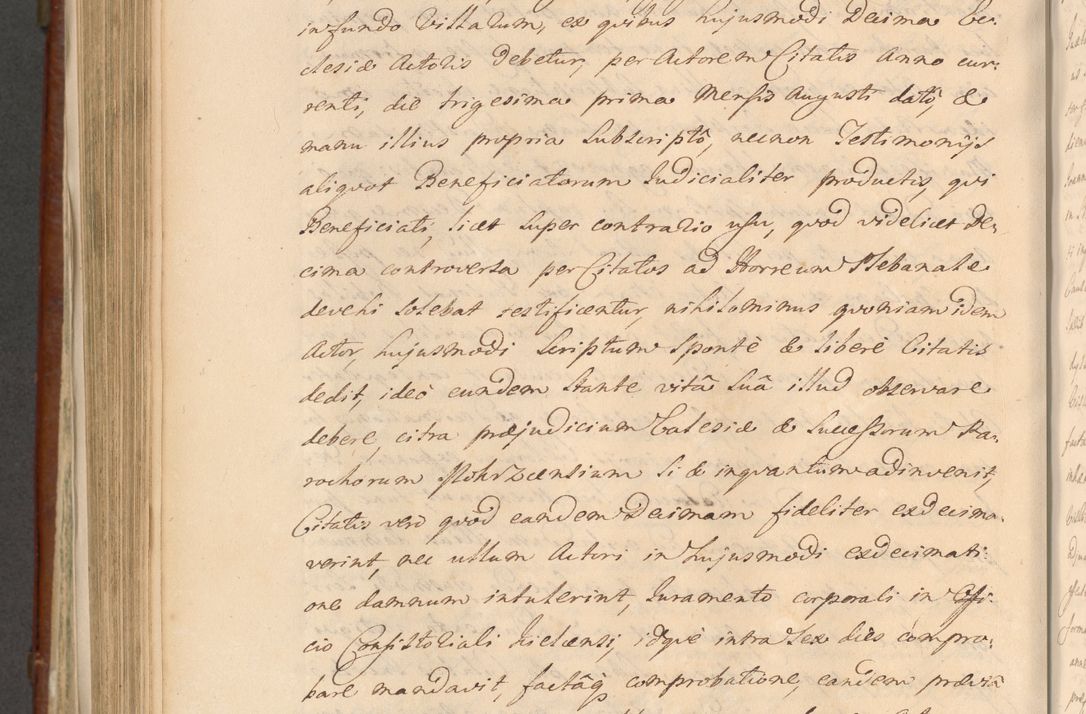 in fundo Villarum, ex quibus hujusmodi Decima Ec-
clesiæ Actoris debetur, per Actorem Citatis Anno cur-
renti, die trigesima prima Mensis Augusti datô, &
manu illius propria Subscriptô, necnon Testimonijs
aliquot Beneficiatorum Judicialiter productis, qui
Beneficiati, licet super contrario usu, quod videlicet De-
cima controversa per Citatos ad Horreum Plebanale
devehi solebat testificentur, nihilominus quoniam idem
Actor, hujusmodi Scriptum Spontè & liberè Citatis
dedit, ideò eundem stante vitâ Suâ illud observare
debere, citra præjudicium Ecclesiæ & Successorum Pa-
rochorum Mokrzcensium Si & inquantum adinvenit,
Citatis verò quòd eandem Decimam fideliter exdecima-
verint, nec ullum Actori in hujusmodi exdecimati-
one damnum intulerint, Juramento corporali in Offi-
cio Consistoriali Kielcensi, idquè intra Sex dies compro-
bare mandavit, factâq; comprobatione, eandem præviâ